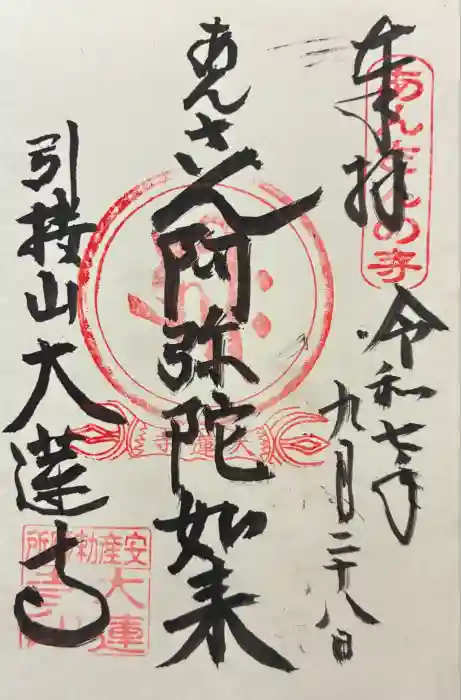 奉拝
あんさんの寺
令和七年
九月二十八日
あんさん
阿弥陀如来
大蓮寺
引接山
大蓮寺
安産勅願所
大蓮寺